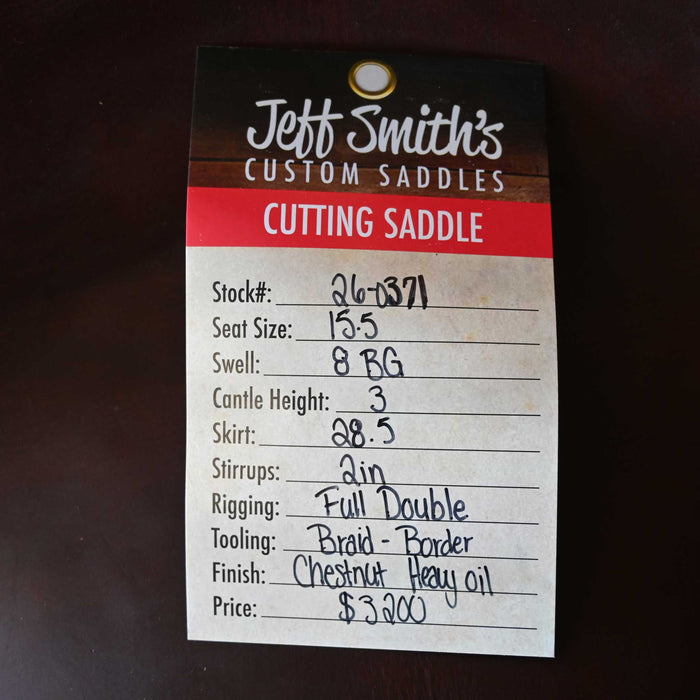 Jeff Smith's
CUSTOM SADDLES
CUTTING SADDLE
Stock#: 26-0371
Seat Size: 15.5
Swell: 8 BG
Cantle Height: 3
Skirt: 28.5
Stirrups: 2in
Rigging: Full Double
Tooling: Braid - Border
Finish: Chestnut Heavy oil
Price: $3200